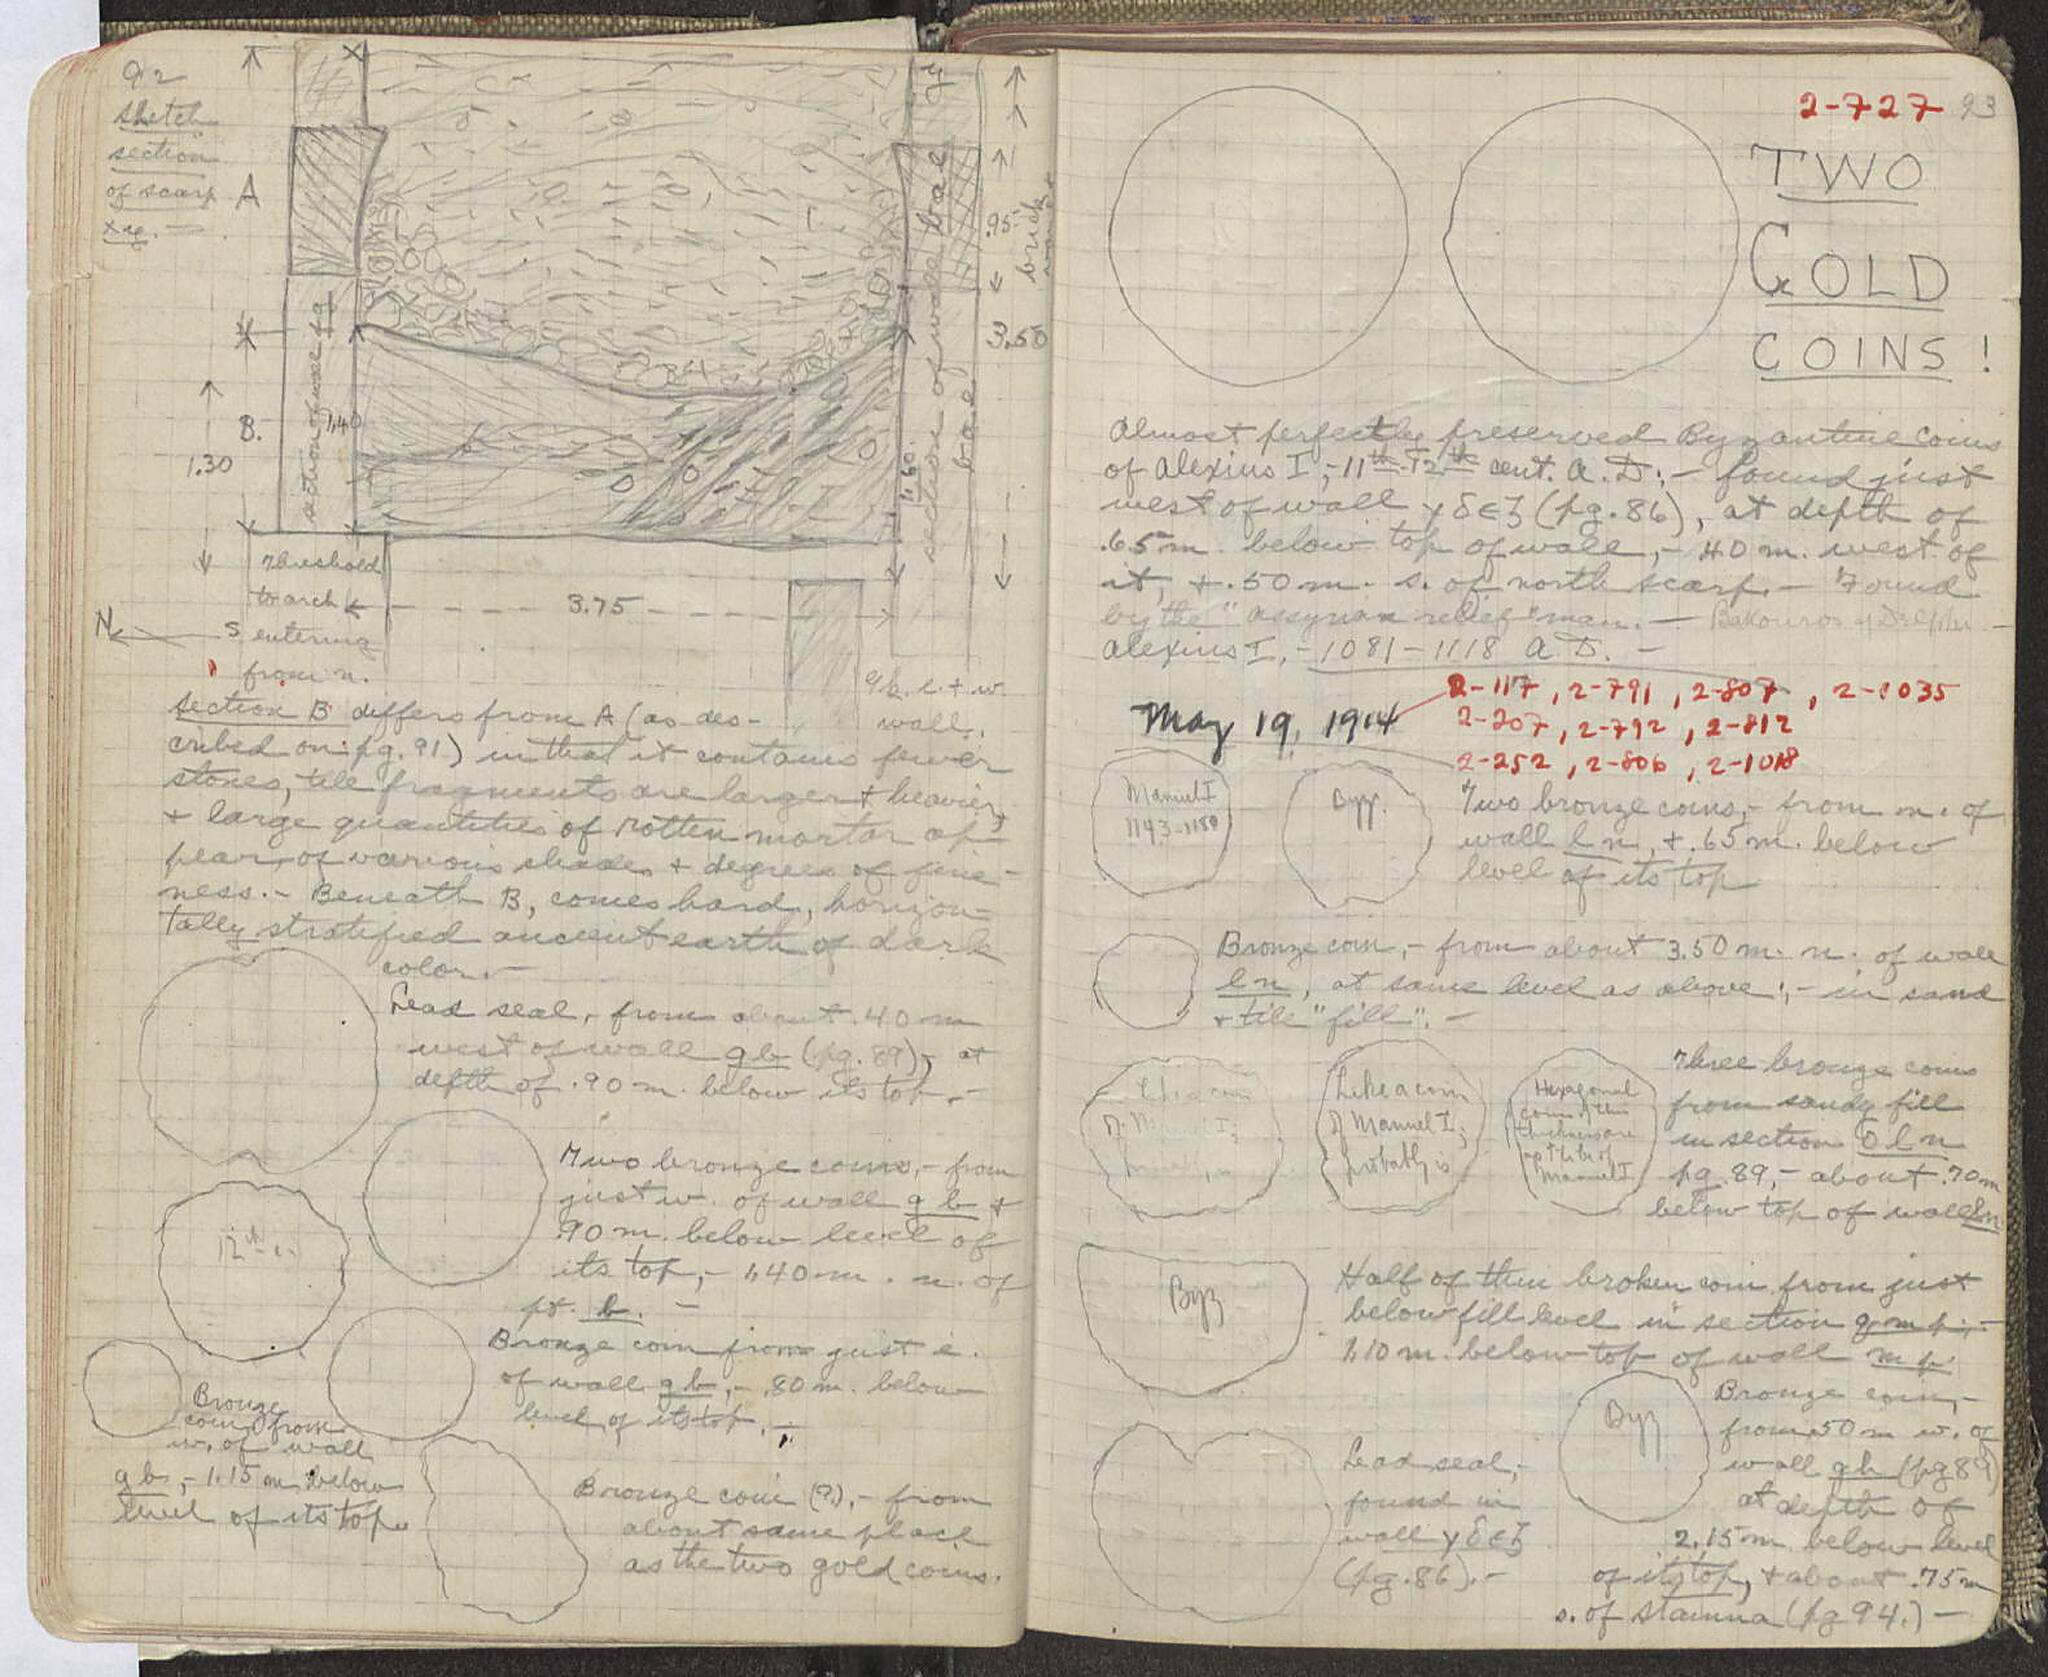 92
Sketch
section
of scarp
xy. —
A
B.
1.30
section of wall fg
1.40
y
section of wall bae
bae
1.60
.95
brick
3.50
threshold
to arch
entering
from n.
3.75
N
S
gb. e. + w.
wall.
Section B differs from A (as des-
cribed on pg. 91) in that it contains fewer
stones, tile fragments are larger + heavier,
+ large quantities of rotten mortar ap-
pear, of various shades + degrees of fine-
ness. - Beneath B, comes hard, horizon-
tally stratified ancient earth of dark
color. -
Lead seal, - from about .40 m
west of wall gb (pg. 89), at
depth of .90 m. below its top. -
Two bronze coins, - from
just w. of wall gb +
.90 m. below level of
its top, - 1.40 m. n. of
pt. b. —
12th c.
Bronze coin from just e.
of wall gb, - .80 m. below
level of its top. -
Bronze
coin from
w. of wall
gb, - 1.15 m. below
level of its top.
Bronze coin (?), - from
about same place
as the two gold coins.
2-727 93
TWO
GOLD
COINS!
Almost perfectly preserved Byzantine coins
of Alexius I, - 11th-12th cent. A.D.; - found just
west of wall γδεζ (pg. 86), at depth of
.65 m. below top of wall, - .40 m. west of
it, + .50 m. s. of north scarp. - Found
by the "Assyrian relief" man. — Bakouros of Delphi —
Alexius I, - 1081 - 1118 A.D. —
2-117, 2-791, 2-807, 2-1035
May 19, 1914
2-207, 2-792, 2-812
2-252, 2-806, 2-1018
Manuel I
1143-1180
Byz.
Two bronze coins, - from n. of
wall ln, + .65 m. below
level of its top
Bronze coin, - from about 3.50 m. n. of wall
ln, at same level as above; - in sand
+ tile "fill". -
Like a coin
of Manuel I;
Like a coin
of Manuel I;
probably is
Hexagonal
coins of this
thickness are
apt to be of
Manuel I
Three bronze coins
from sandy fill
in section Oln
pg. 89, - about .70 m
below top of wall ln
Byz
Half of thin broken coin from just
below fill level in section qmp, -
1.10 m. below top of wall mp
Byz
Bronze coin, -
from .50 m w. of
wall gb (pg 89)
at depth of
2.15 m below level
of its top, + about .75 m
s. of stamna (pg 94.) —
Lead seal, -
found in
wall γδεζ
(pg. 86). -